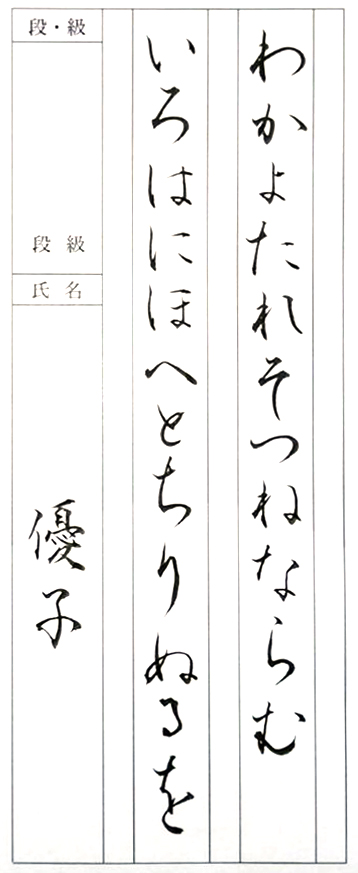 わかよたれそつねならむ
いろはにほへとちりぬるを
段・級
段級
氏名
優子